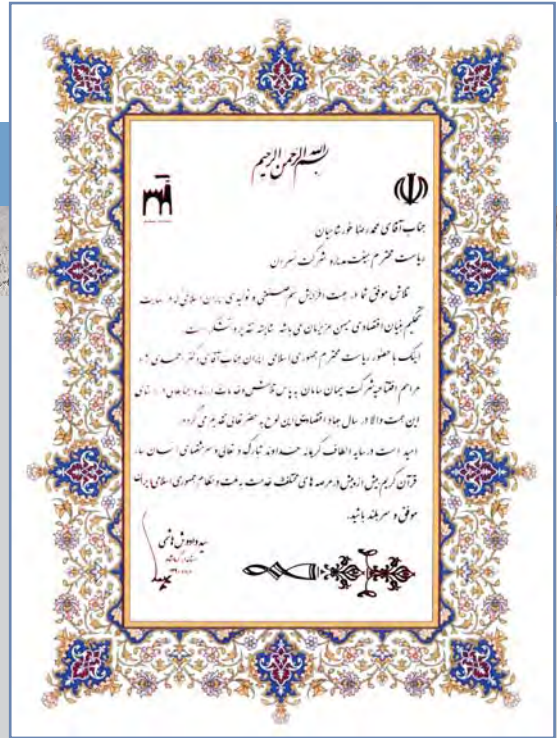 بسم الله الرحمن الرحیم
جناب آقای محمدرضا خورشاهیان
ریاست محترم هیئت مدیره شرکت
تلاش موفق شما در جهت افزایش سهم صنعتی و تولیدی ایران اسلامی که در نهایت
تحکیم بنیان اقتصادی میهن عزیزمان می باشد شایسته تقدیر و تشکر است.
اینک با حضور ریاست محترم جمهوری اسلامی ایران جناب آقای دکتر احمدی نژاد
مراسم افتتاحیه شرکت سیمان سامان به پاس تلاش و خدمات ارزنده جنابعالی در راستای
این همت والا در سال جهاد اقتصادی این لوح به حضرتعالی تقدیم می گردد.
امید است در سایه الطاف کریمانه خداوند تبارک و تعالی و
قرآن کریم بیش از پیش در عرصه های مختلف خدمت به ملت و نظام جمهوری اسلامی ایران
موفق و سربلند باشید.
سید داودش هاشمی
استاندار کرمانشاه